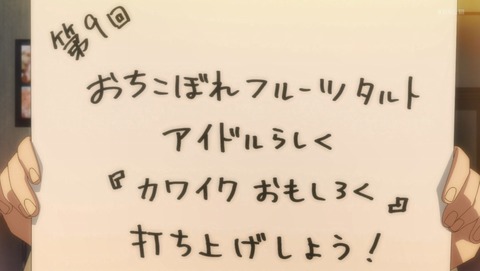 第9回
おちこぼれフルーツタルト
アイドルらしく
『カワイク おもしろく』
打ち上げしよう！